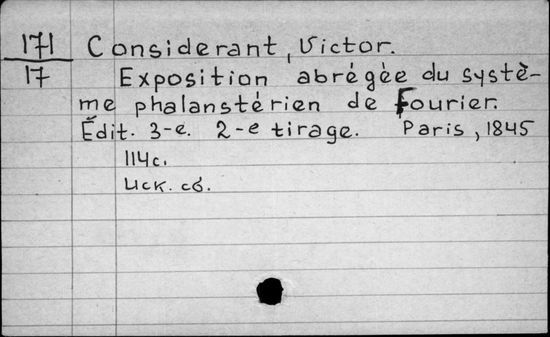 171
17
Considerant, Victor.
Exposition abrégèe du systè-
me phalanstérien de Fourier.
Édit. 3-e. 2-e tirage. Paris, 1845
114с.
Иск. сб.